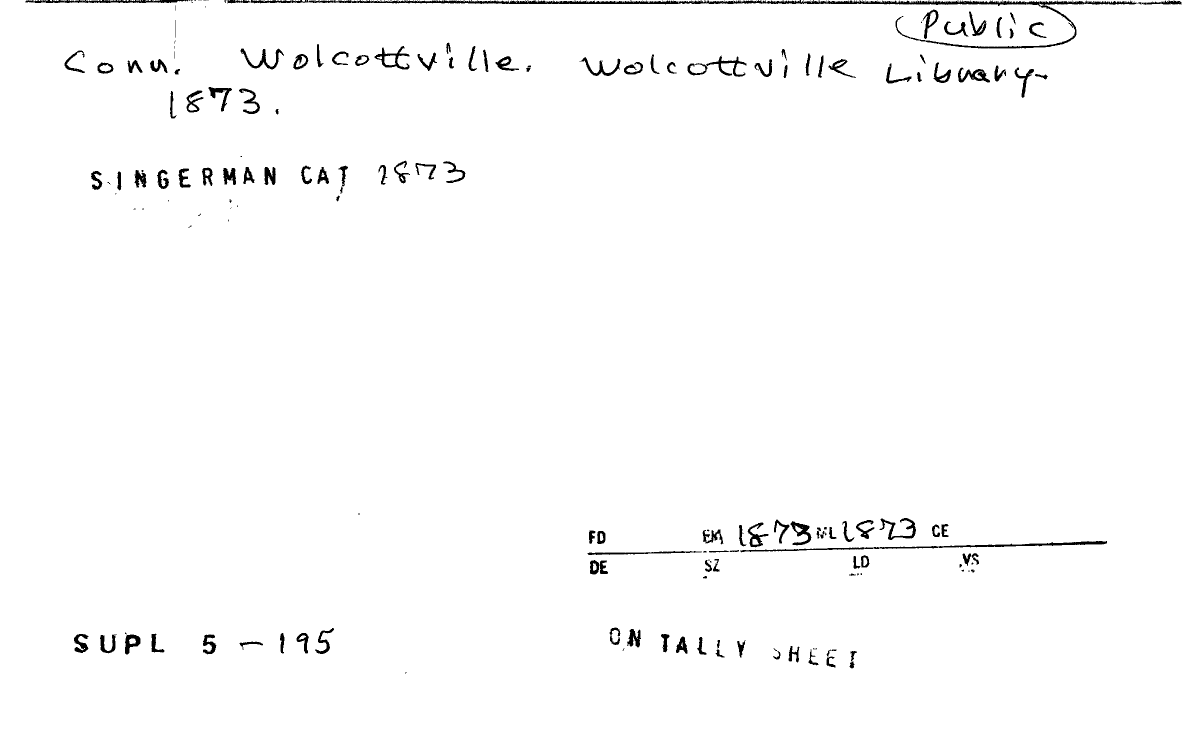 Public
Conn. Wolcottville. Wolcottville Library.
1873.
SINGERMAN CAT 1873
FD EM 1873 ML 1873 CE
DE SZ LD VS
SUPL 5 - 195
ON TALLY SHEET